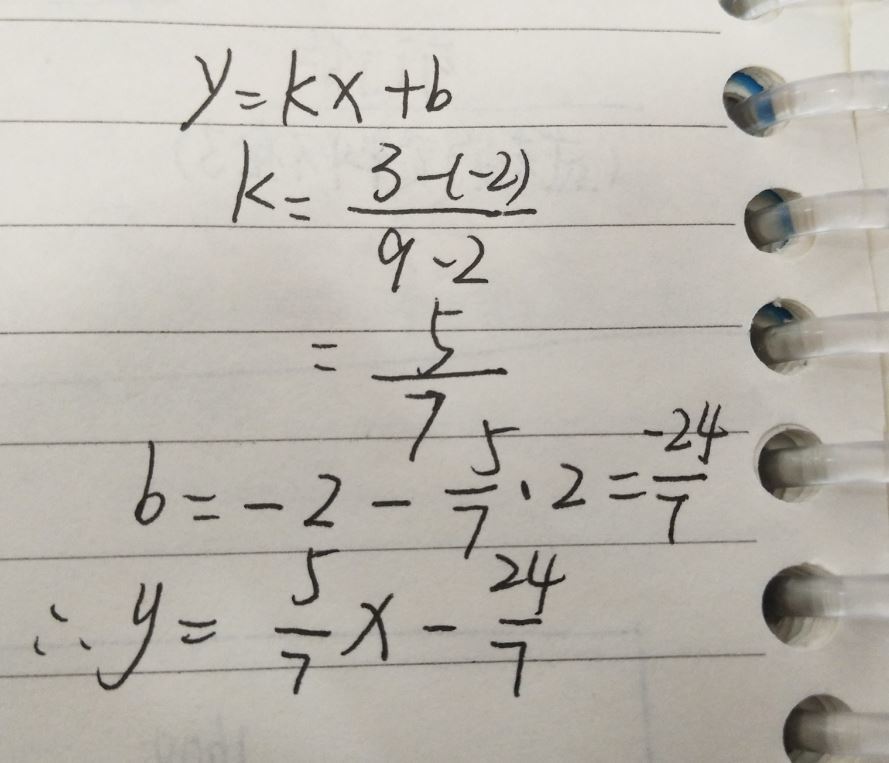 y = kx + b
k = \frac{3-(-2)}{9-2}
= \frac{5}{7}
b = -2 - \frac{5}{7} · 2 = \frac{-24}{7}
∴ y = \frac{5}{7}x - \frac{24}{7}